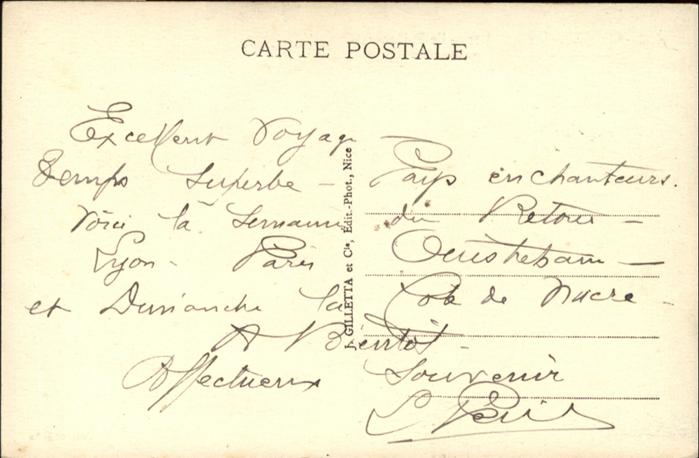 CARTE POSTALE
Excellent Voyage
temps superbe - Pays enchanteurs.
Voici la Semaine du Retour -
Lyon - Paris Ouistreham -
et Dimanche la Côte de Nacre -
A Bientôt -
Affectueux Souvenir
GILLETTA et Cie, Édit.-Phot., Nice